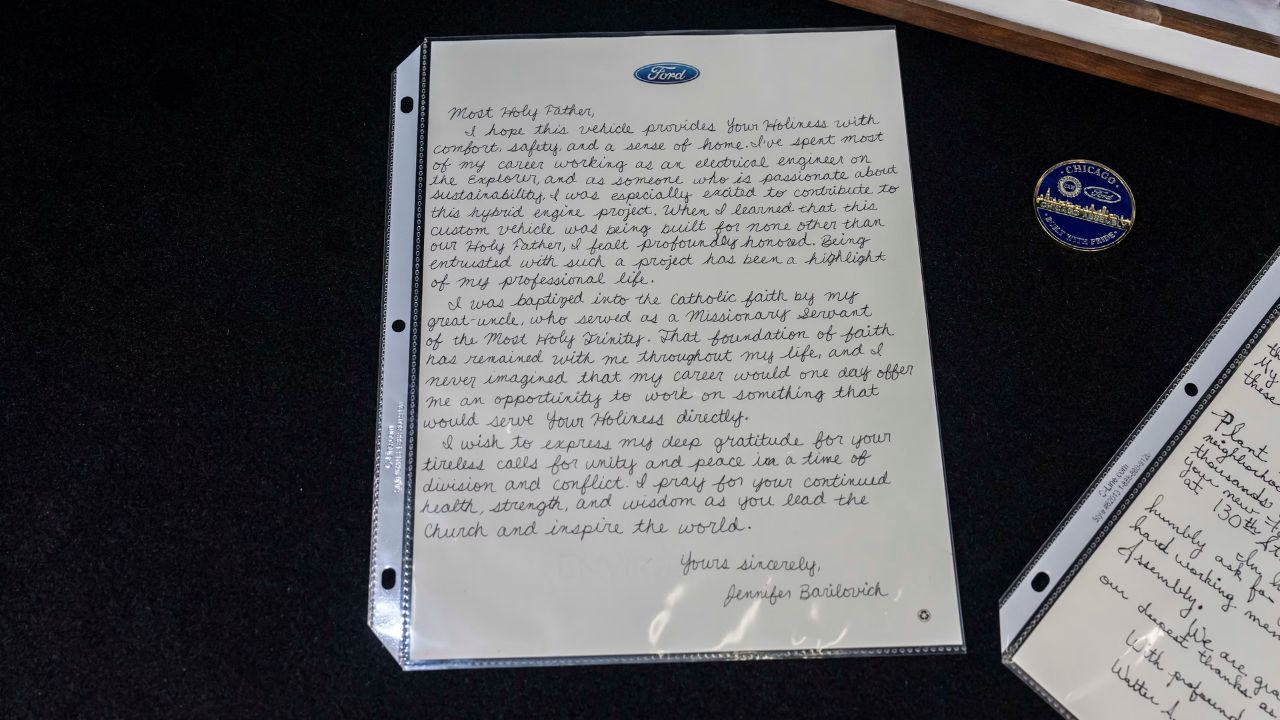 Ford
Most Holy Father,
I hope this vehicle provides Your Holiness with
comfort, safety, and a sense of home. I've spent most
of my career working as an electrical engineer on
the Explorer, and as someone who is passionate about
sustainability, I was especially excited to contribute to
this hybrid engine project. When I learned that this
custom vehicle was being built for none other than
our Holy Father, I fealt profoundly honored. Being
entrusted with such a project has been a highlight
of my professional life.
I was baptized into the Catholic faith by my
great-uncle, who served as a Missionary Servant
of the Most Holy Trinity. That foundation of faith
has remained with me throughout my life, and I
never imagined that my career would one day offer
me an opportunity to work on something that
would serve Your Holiness directly.
I wish to express my deep gratitude for your
tireless calls for unity and peace in a time of
division and conflict. I pray for your continued
health, strength, and wisdom as you lead the
Church and inspire the world.
Yours sincerely,
Jennifer Barilovich
CHICAGO
UAW
Ford
BUILT WITH PRIDE
My
these
Plant
thousands
you new
at 130th
humbly
ask
hard working men
Assembly. We are
our dearest thanks as
With profound
Walter
C-Line.com